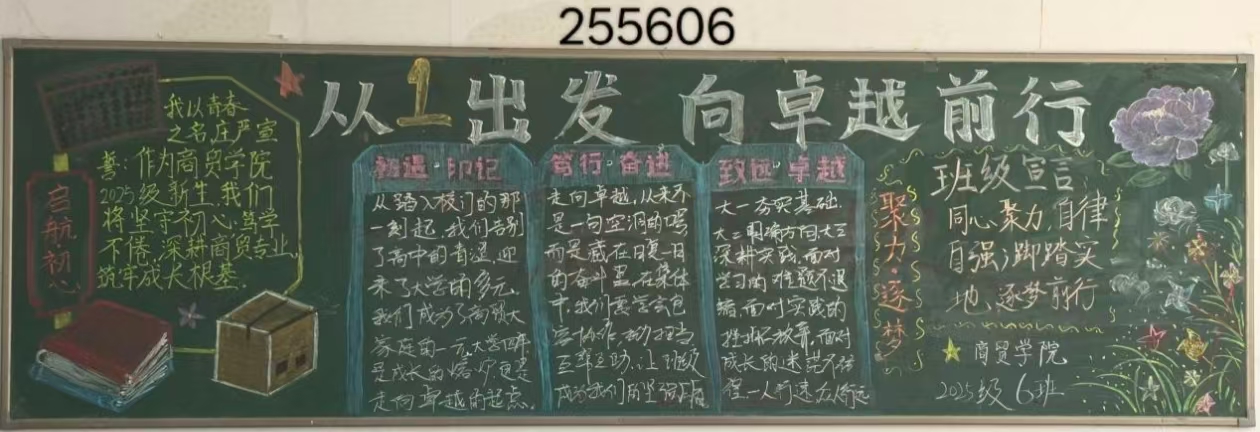 255606
从1出发 向卓越前行
我以青春
之名庄严宣
誓:作为商贸学院
2025级新生,我们
将坚守初心、笃学
不倦,深耕商贸专业,
筑牢成长根基.
启航·初心
初遇·印记
从踏入校门的那
一刻起,我们告别
了高中的青涩,迎
来了大学的多元.
我们成为了商贸大
家庭的一元,大学四年
是成长的熔炉,更是
走向卓越的起点.
笃行·奋进
走向卓越,从来不
是一句空洞的口号
而是藏在日复一日
的奋斗里,在集体
中,我们要学会包
容协作,主动担当
互幸互助,让班级
成为我们的坚强后盾
致远·卓越
大一夯实基础
大二明确方向大三
深耕实践,面对
学习的难题不退
缩,面对实践的
挫折不放弃,面对
成长的迷茫不彷
一人行速众行远
聚力·逐梦
班级宣言
同心聚力,自律
自强;脚踏实
地、逐梦前行
商贸学院
2025级6班